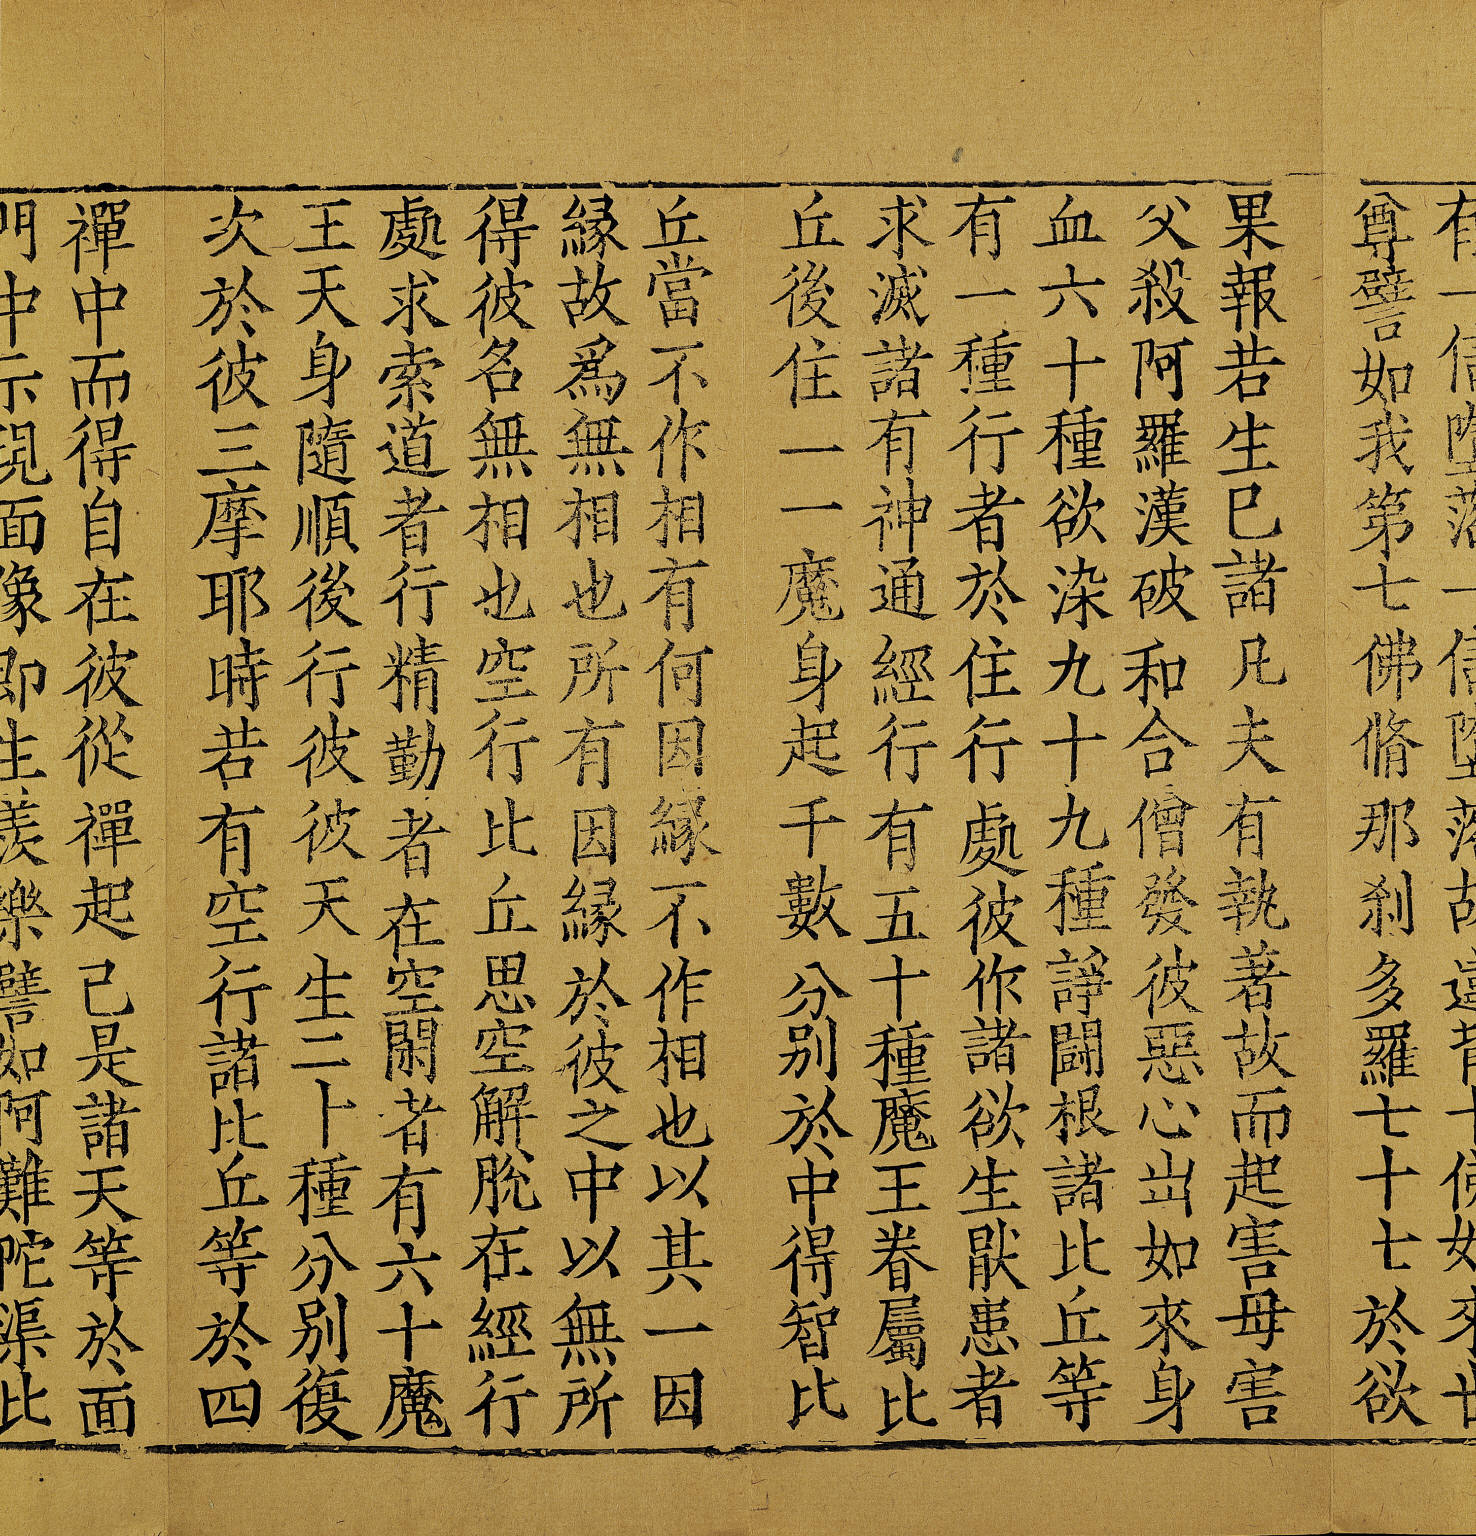 有一信墮落一信墮落故違背十佛如來世
尊譬如我第七佛脩那剎多羅七十七於欲
果報若生已諸凡夫有執著故而起害母害
父殺阿羅漢破和合僧發彼惡心出如來身
血六十種欲染九十九種諍鬪根諸比丘等
有一種行者於住行處彼作諸欲生猒患者
求滅諸有神通經行有五十種魔王眷屬比
丘後住一一魔身起千數分別於中得智比
丘當不作相有何因緣不作相也以其一因
緣故爲無相也所有因緣於彼之中以無所
得彼名無相也空行比丘思空解脫在經行
處求索道者行精勤者在空閑者有六十魔
王天身隨順後行彼彼天生二十種分別復
次於彼三摩耶時若有空行諸比丘等於四
禪中而得自在彼從禪起已是諸天等於面
門中示現面像即生羨樂譬如阿難陀渠比